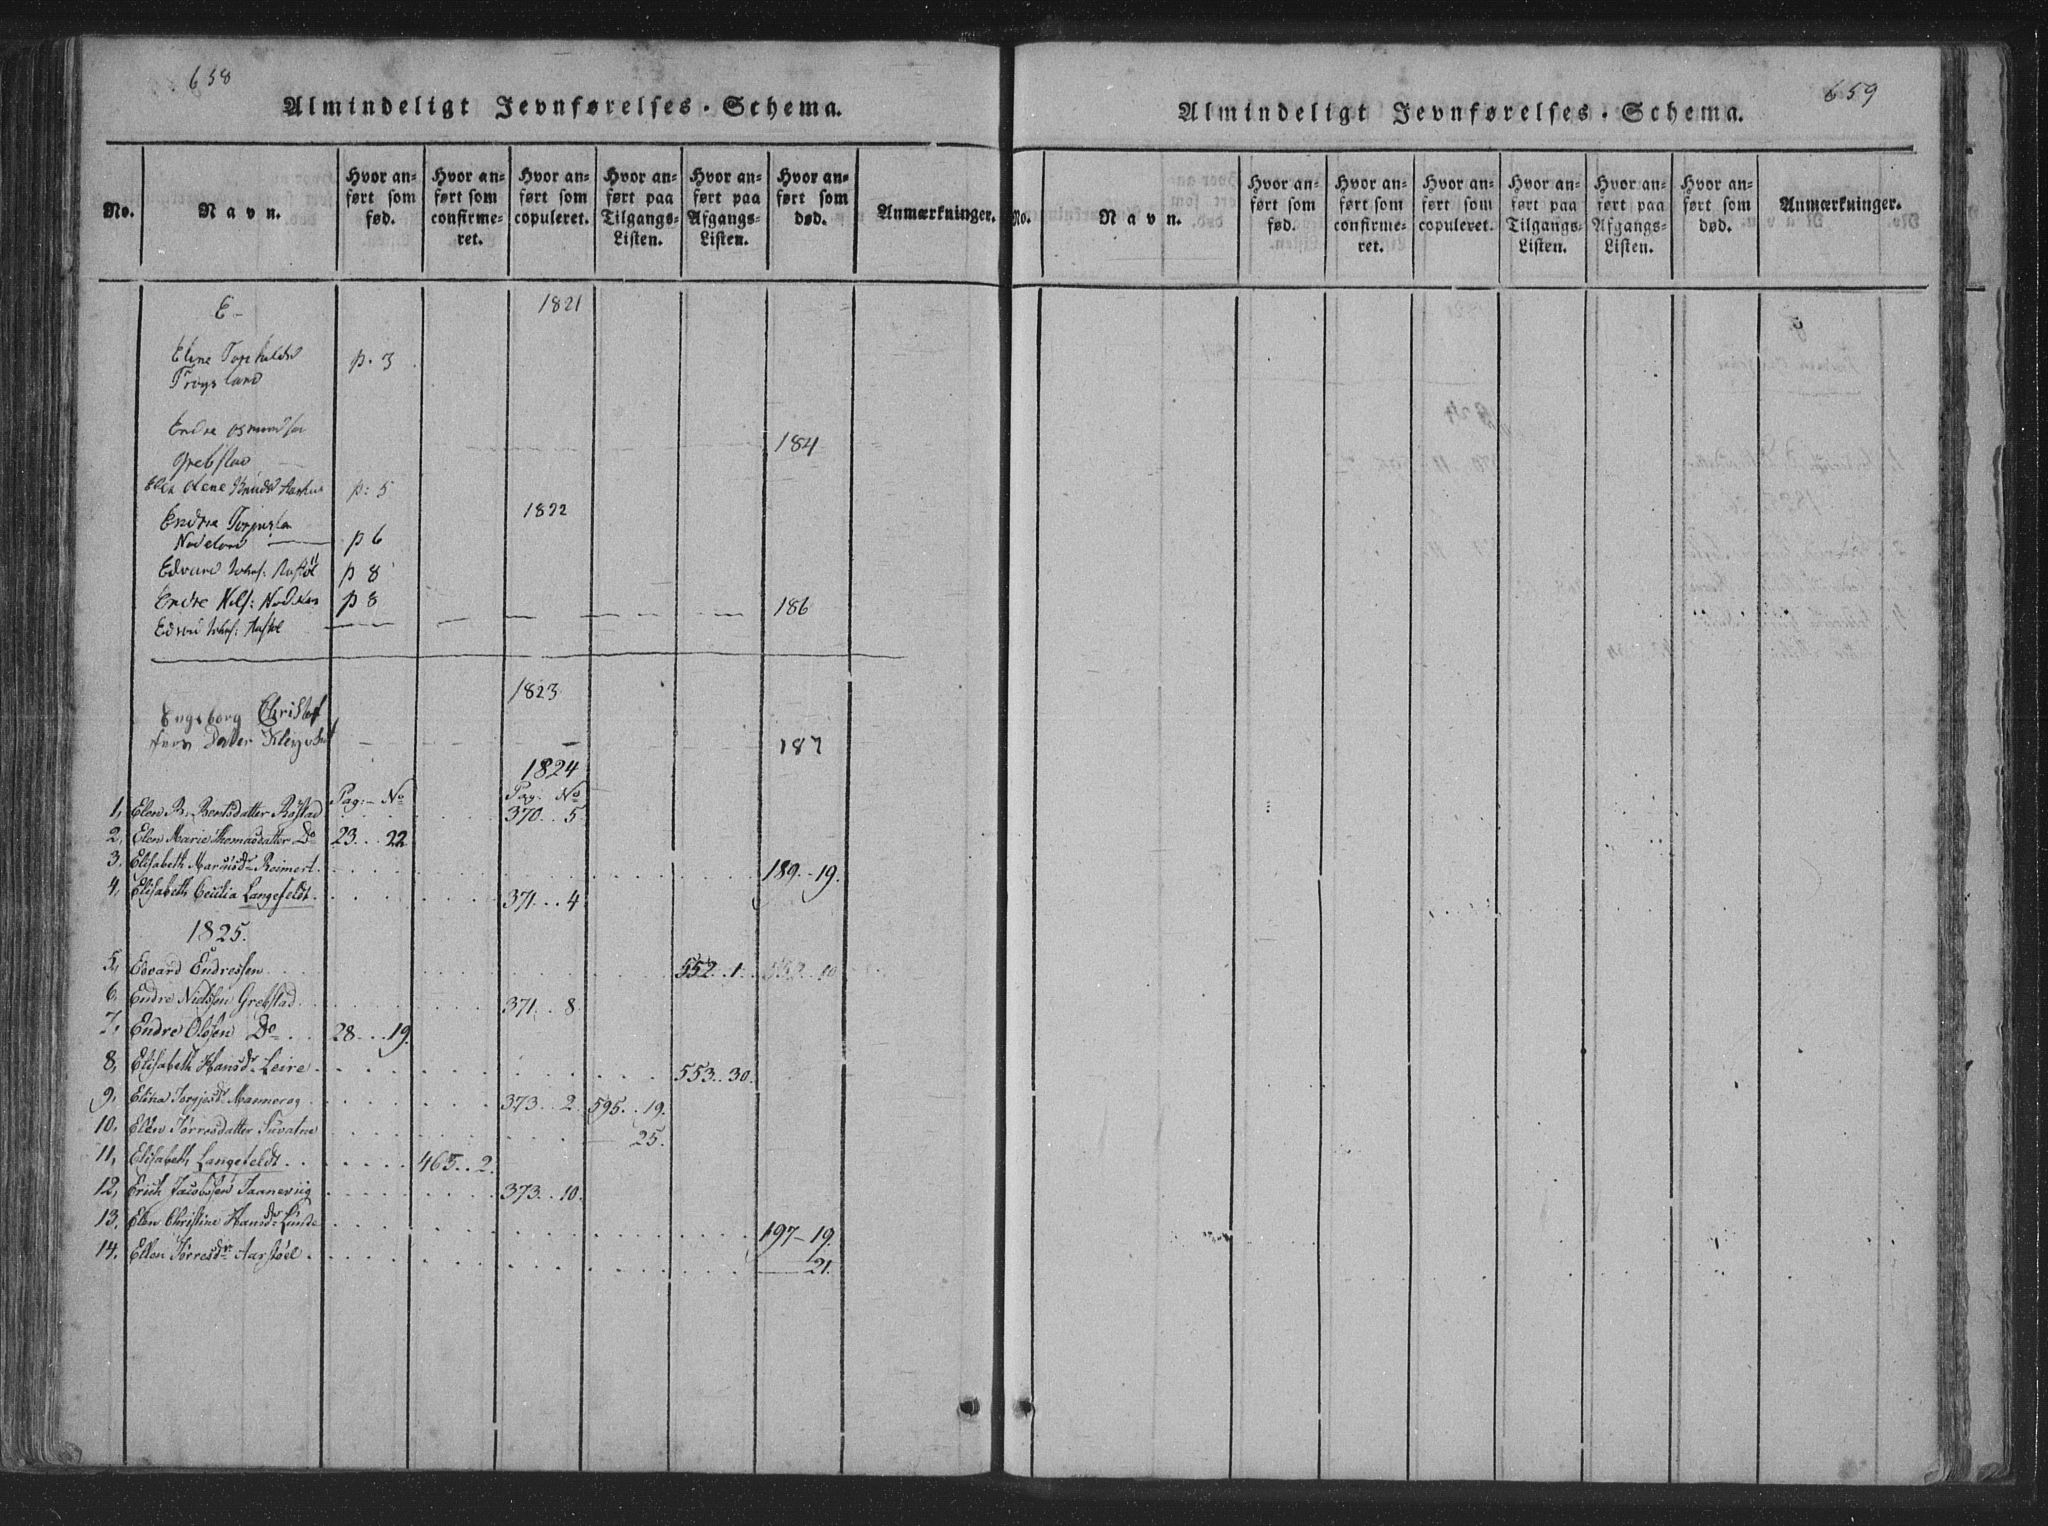 658
Almindeligt Jevnførelses-Schema.
No. | Navn. | Hvor anført som fød. | Hvor anført som confirmeret. | Hvor anført som copuleret. | Hvor anført paa Tilgangs-Listen. | Hvor anført paa Afgangs-Listen. | Hvor anført som død. | Anmærkninger.
E - 1821
Eline
p. 3
Endre
Grebstad 184
Olene p: 5
1822
Endre
p 6
Edvard p 8
Endre p 8 186
Edvard
1823
Engeborg Christof
187
1824
Pag: No Pag: No
1, Elen B. Berntsdatter Røstad 370 .. 5
2, Elen Marie Thomasdatter Do 23 ... 22
3, Elisabeth Reimert 189 .. 19.
4, Elisabeth Cecilia Langefeldt. 371 ... 4
1825.
5, Edvard Endressen 552 .. 1. 552 .. 10
6, Endre Nielssen Grebstad. 371 .. 8.
7, Endre Olssen Do 28 ... 19.
8, Elisabeth Hansdr Leire. 553 .. 30.
9, Elina 373 .. 2. 595 .. 19.
10, Elen Tørresdatter 25.
11, Elisabeth Langefeldt. 465 .. 2.
12, Erich Jacobssen 373 .. 10.
13, Elen Christine Hansdr Lunde 197 - 19.
14. Ellen Tørresdr Aarstøel 21.
659
Almindeligt Jevnførelses-Schema.
No. | Navn. | Hvor anført som fød. | Hvor anført som confirmeret. | Hvor anført som copuleret. | Hvor anført paa Tilgangs-Listen. | Hvor anført paa Afgangs-Listen. | Hvor anført som død. | Anmærkninger.